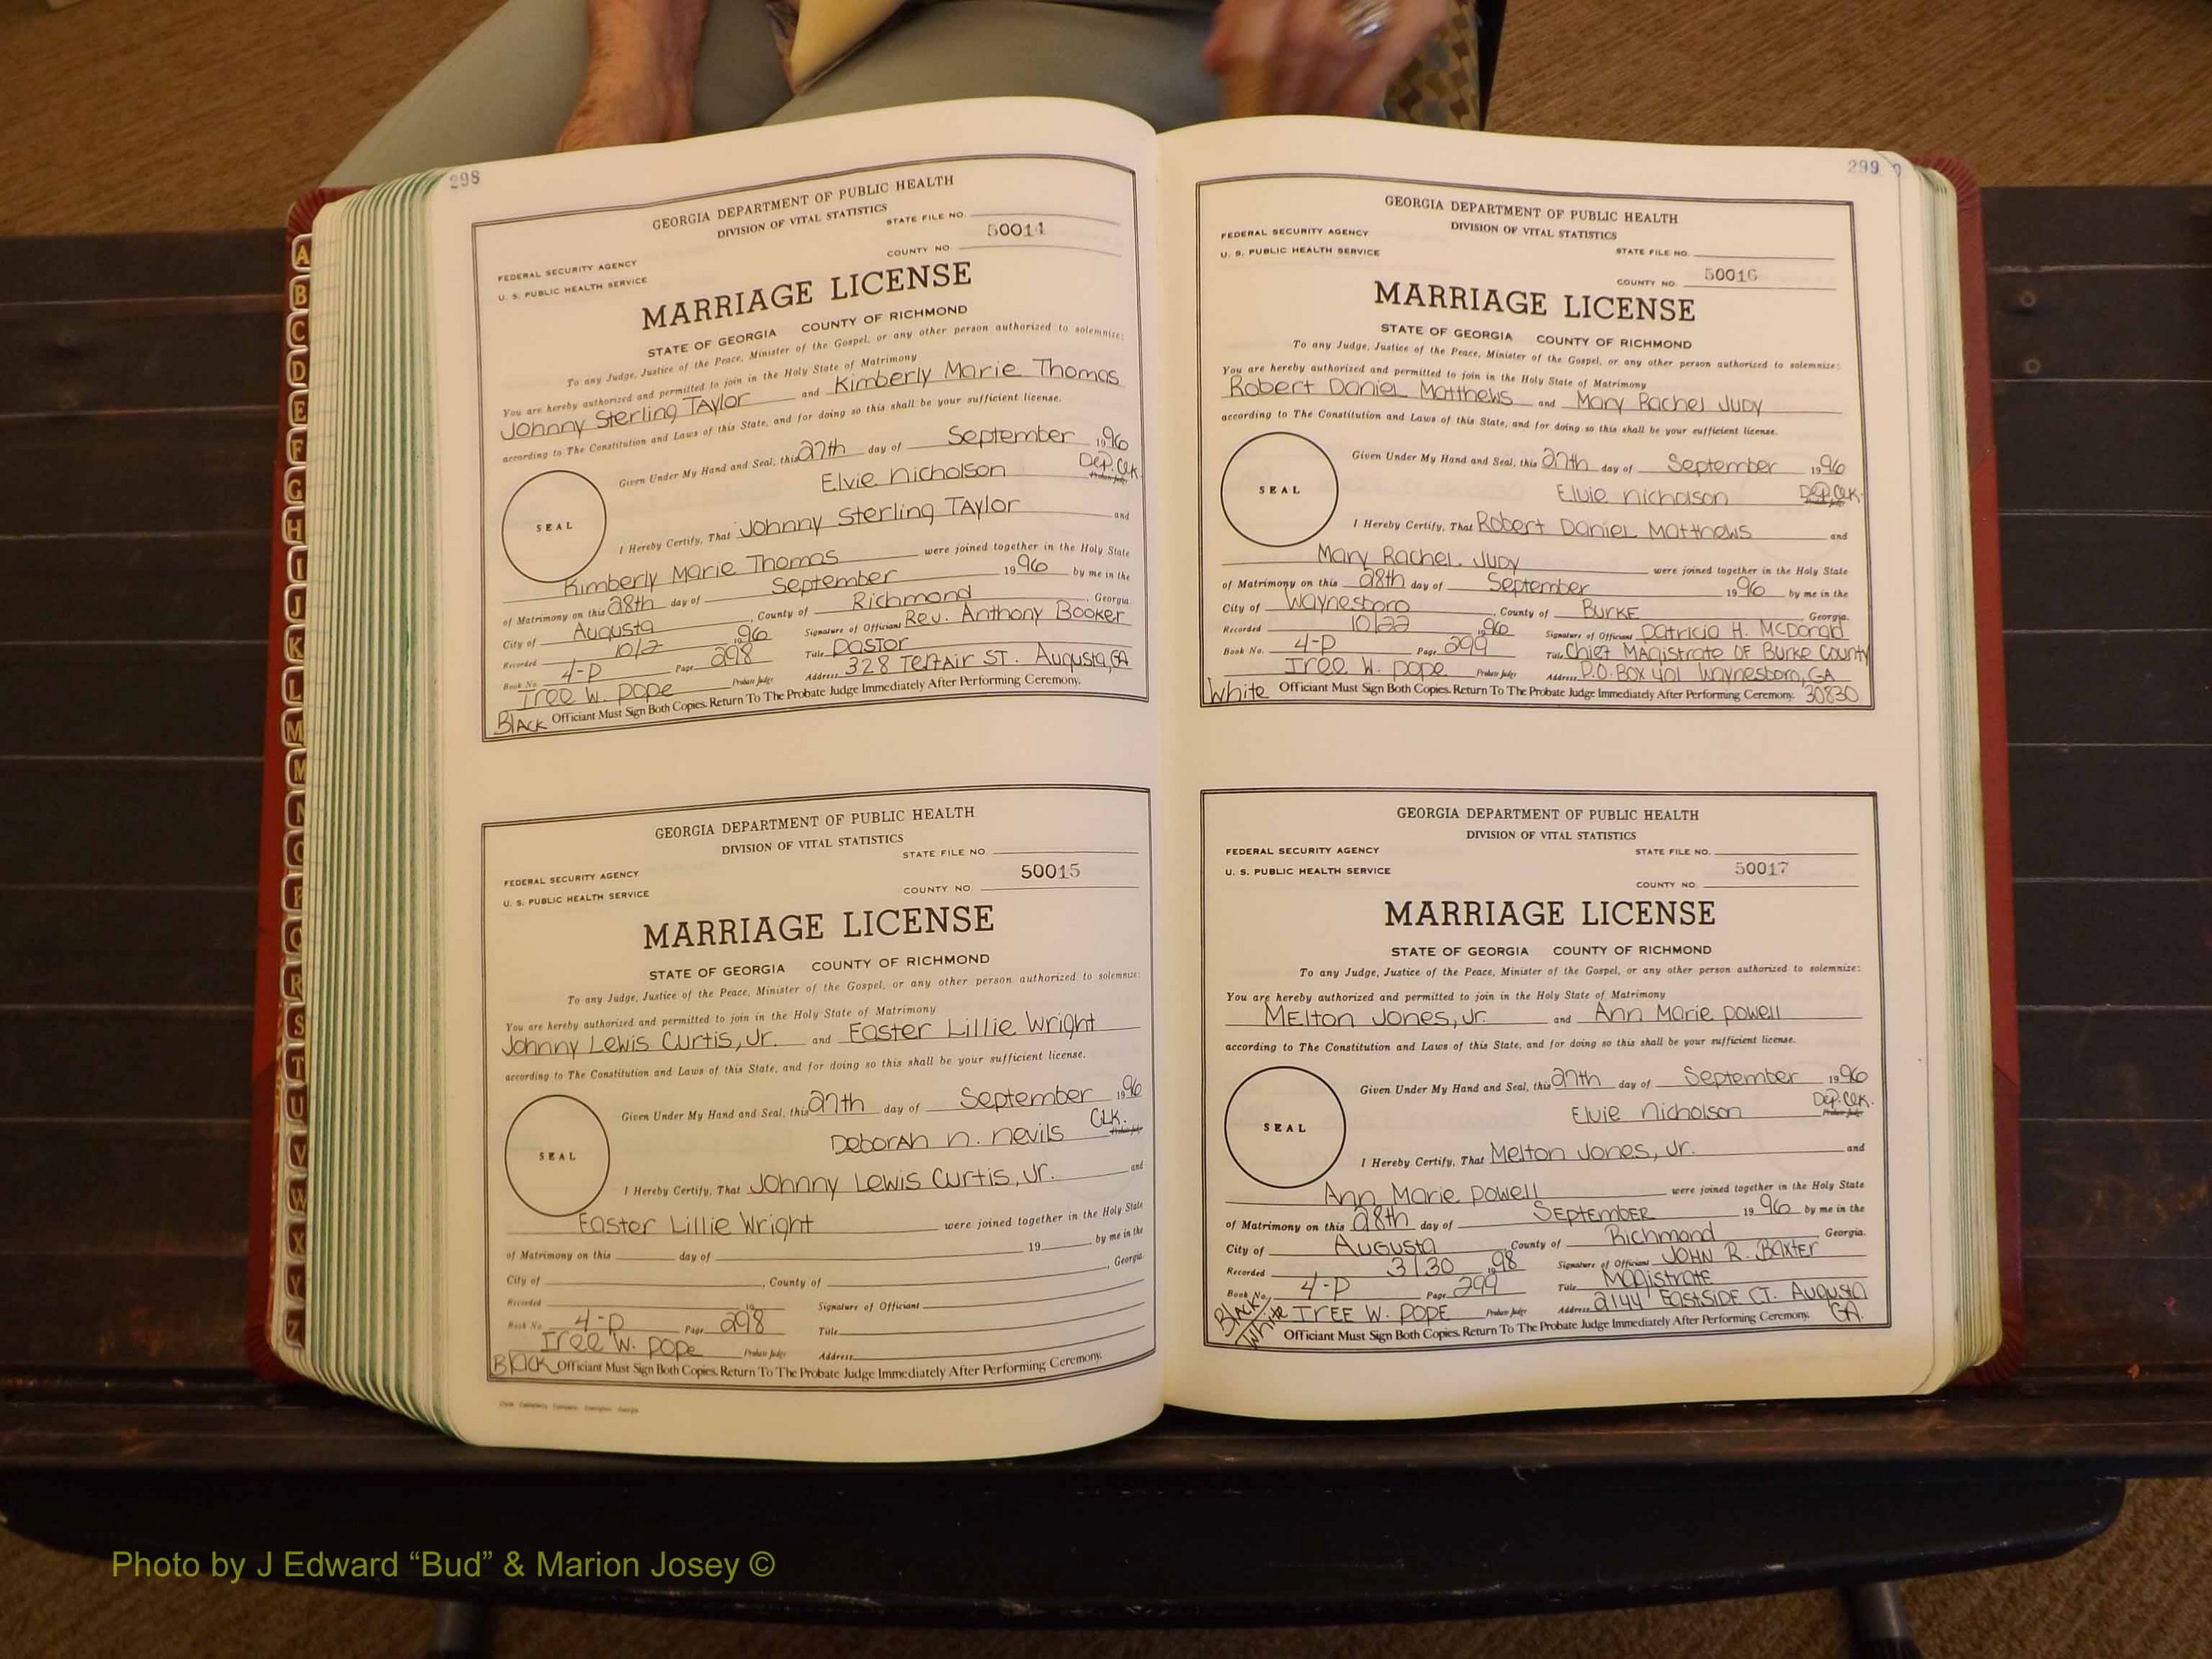 298
GEORGIA DEPARTMENT OF PUBLIC HEALTH
DIVISION OF VITAL STATISTICS
STATE FILE NO.
50014
COUNTY NO
FEDERAL SECURITY AGENCY
U. S. PUBLIC HEALTH SERVICE
MARRIAGE LICENSE
STATE OF GEORGIA COUNTY OF RICHMOND
To any Judge, Justice of the Peace, Minister of the Gospel, or any other person authorized to solemnize:
You are hereby authorized and permitted to join in the Holy State of Matrimony
Johnny Sterling TAylor and Kimberly Marie Thomas
according to The Constitution and Laws of this State, and for doing so this shall be your sufficient license.
Given Under My Hand and Seal, this 27th day of September 1996
Elvie Nicholson Dep. Clk.
SEAL
I Hereby Certify, That Johnny Sterling TAylor and
Kimberly Marie Thomas were joined together in the Holy State
of Matrimony on this 28th day of September 1996 by me in the
City of Augusta, County of Richmond, Georgia
Recorded 10/2 1996 Signature of Officiant Rev. Anthony Booker
Book No. 4-P Page 298 Title Pastor
Iree W. Pope Probate Judge Address 328 Telfair ST. Augusta, GA
BLACK Officiant Must Sign Both Copies. Return To The Probate Judge Immediately After Performing Ceremony.
GEORGIA DEPARTMENT OF PUBLIC HEALTH
DIVISION OF VITAL STATISTICS
STATE FILE NO.
50015
COUNTY NO
FEDERAL SECURITY AGENCY
U. S. PUBLIC HEALTH SERVICE
MARRIAGE LICENSE
STATE OF GEORGIA COUNTY OF RICHMOND
To any Judge, Justice of the Peace, Minister of the Gospel, or any other person authorized to solemnize:
You are hereby authorized and permitted to join in the Holy State of Matrimony
Johnny Lewis Curtis, Jr. and Easter Lillie Wright
according to The Constitution and Laws of this State, and for doing so this shall be your sufficient license.
Given Under My Hand and Seal, this 27th day of September 1996
Deborah N. Nevils CLK.
SEAL
I Hereby Certify, That Johnny Lewis Curtis, Jr. and
Easter Lillie Wright were joined together in the Holy State
of Matrimony on this day of 19 by me in the
City of , County of , Georgia
Recorded 19 Signature of Officiant
Book No. 4-P Page 298 Title
Iree W. Pope Probate Judge Address
Black Officiant Must Sign Both Copies. Return To The Probate Judge Immediately After Performing Ceremony.
299
GEORGIA DEPARTMENT OF PUBLIC HEALTH
DIVISION OF VITAL STATISTICS
FEDERAL SECURITY AGENCY
U. S. PUBLIC HEALTH SERVICE
STATE FILE NO.
50016
COUNTY NO.
MARRIAGE LICENSE
STATE OF GEORGIA COUNTY OF RICHMOND
To any Judge, Justice of the Peace, Minister of the Gospel, or any other person authorized to solemnize:
You are hereby authorized and permitted to join in the Holy State of Matrimony
Robert Daniel Matthews and Mary Rachel Judy
according to The Constitution and Laws of this State, and for doing so this shall be your sufficient license.
Given Under My Hand and Seal, this 27th day of September 1996
Elvie Nicholson Dep. Clk.
SEAL
I Hereby Certify, That Robert Daniel Matthews and
Mary Rachel Judy were joined together in the Holy State
of Matrimony on this 28th day of September 1996 by me in the
City of Waynesboro, County of Burke Georgia.
Recorded 10/22 1996 Signature of Officiant Patricia H. McDonald
Book No. 4-P Page 299 Title Chief Magistrate OF Burke County
Iree W. Pope Probate Judge Address P.O. BOX 401 Waynesboro, GA
White Officiant Must Sign Both Copies. Return To The Probate Judge Immediately After Performing Ceremony. 30830
GEORGIA DEPARTMENT OF PUBLIC HEALTH
DIVISION OF VITAL STATISTICS
FEDERAL SECURITY AGENCY
STATE FILE NO.
U. S. PUBLIC HEALTH SERVICE
50017
COUNTY NO.
MARRIAGE LICENSE
STATE OF GEORGIA COUNTY OF RICHMOND
To any Judge, Justice of the Peace, Minister of the Gospel, or any other person authorized to solemnize:
You are hereby authorized and permitted to join in the Holy State of Matrimony
Melton Jones, Jr. and Ann Marie Powell
according to The Constitution and Laws of this State, and for doing so this shall be your sufficient license.
Given Under My Hand and Seal, this 27th day of September 1996
Elvie Nicholson Dep. Clk.
SEAL
I Hereby Certify, That Melton Jones, Jr. and
Ann Marie Powell were joined together in the Holy State
of Matrimony on this 28th day of September 1996 by me in the
City of Augusta, County of Richmond Georgia.
Recorded 3/30 1998 Signature of Officiant John R. Baxter
Book No. 4-P Page 299 Title Magistrate
Black/White Iree W. Pope Probate Judge Address 2144 Eastside CT. Augusta
Officiant Must Sign Both Copies. Return To The Probate Judge Immediately After Performing Ceremony. GA.
A
B
C
D
E
F
G
H
I
J
K
L
M
M
N
O
P
Q
R
S
T
U
V
W
X
Y
Z
Photo by J Edward “Bud” & Marion Josey ©